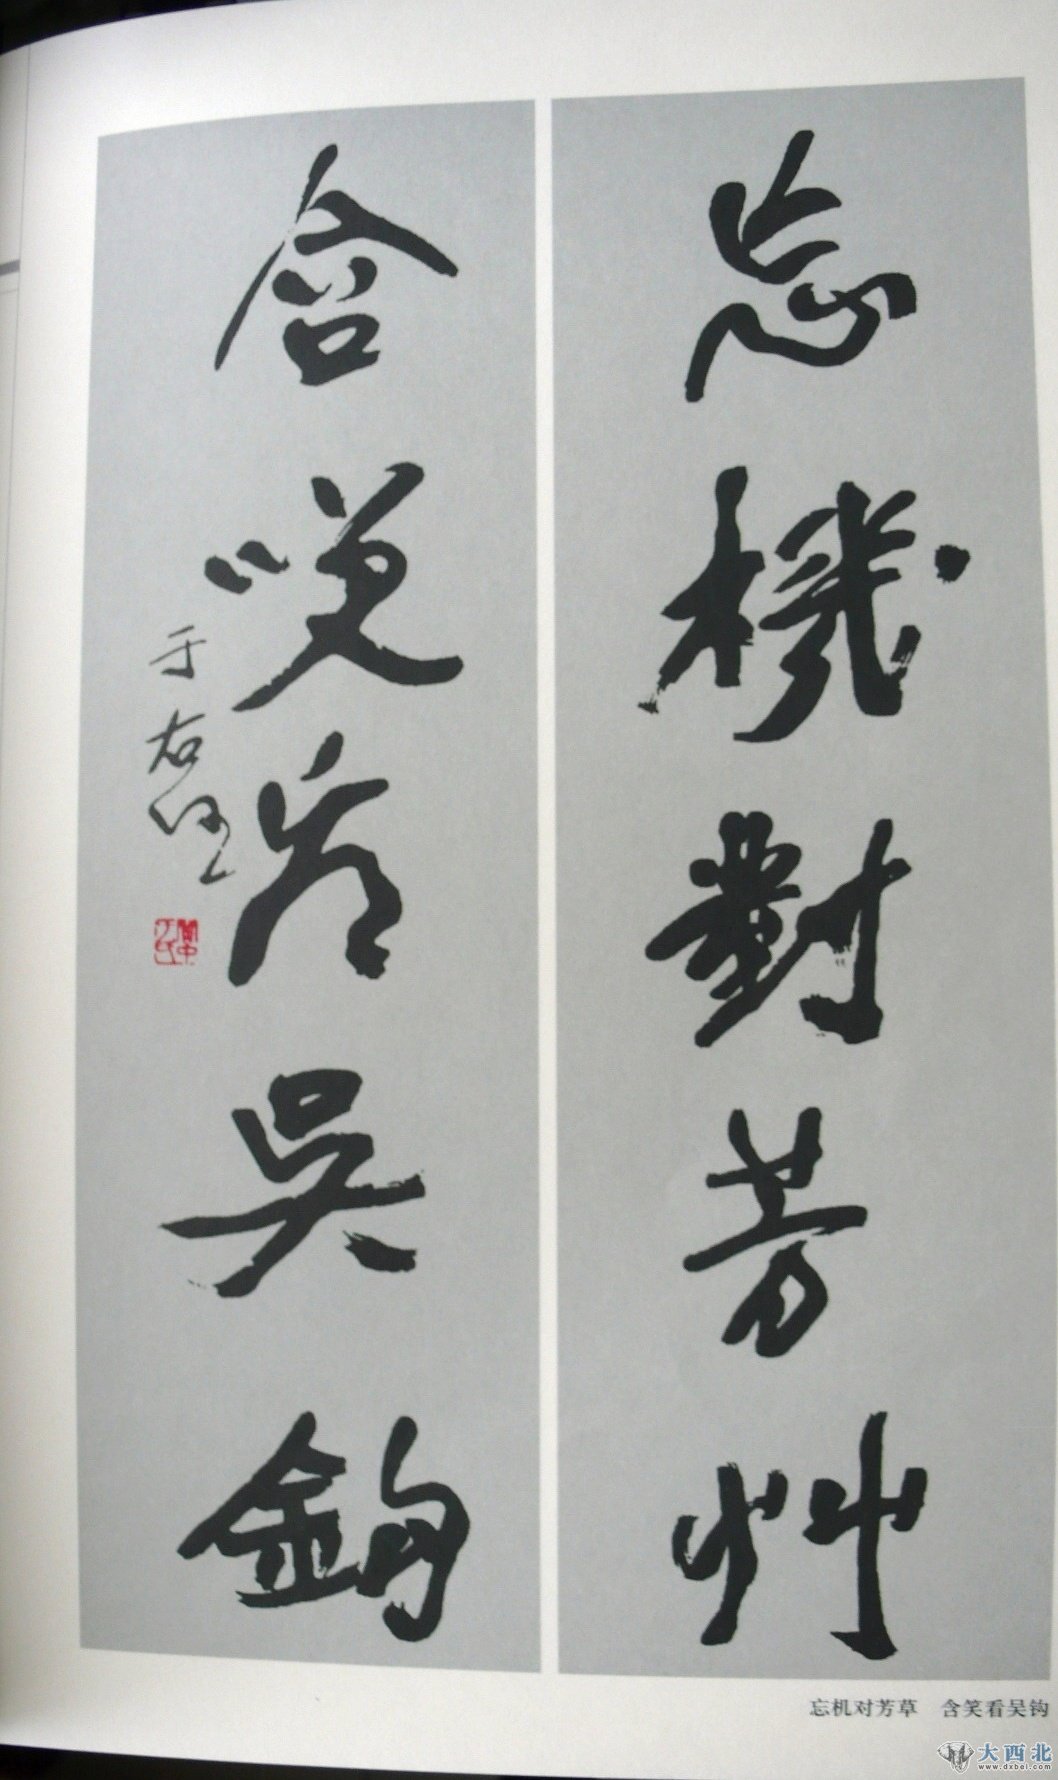 忘機對芳艸
含咲看吳鉤
于右任
關中于氏
忘机对芳草 含笑看吴钩
大西北
www.dxbei.com